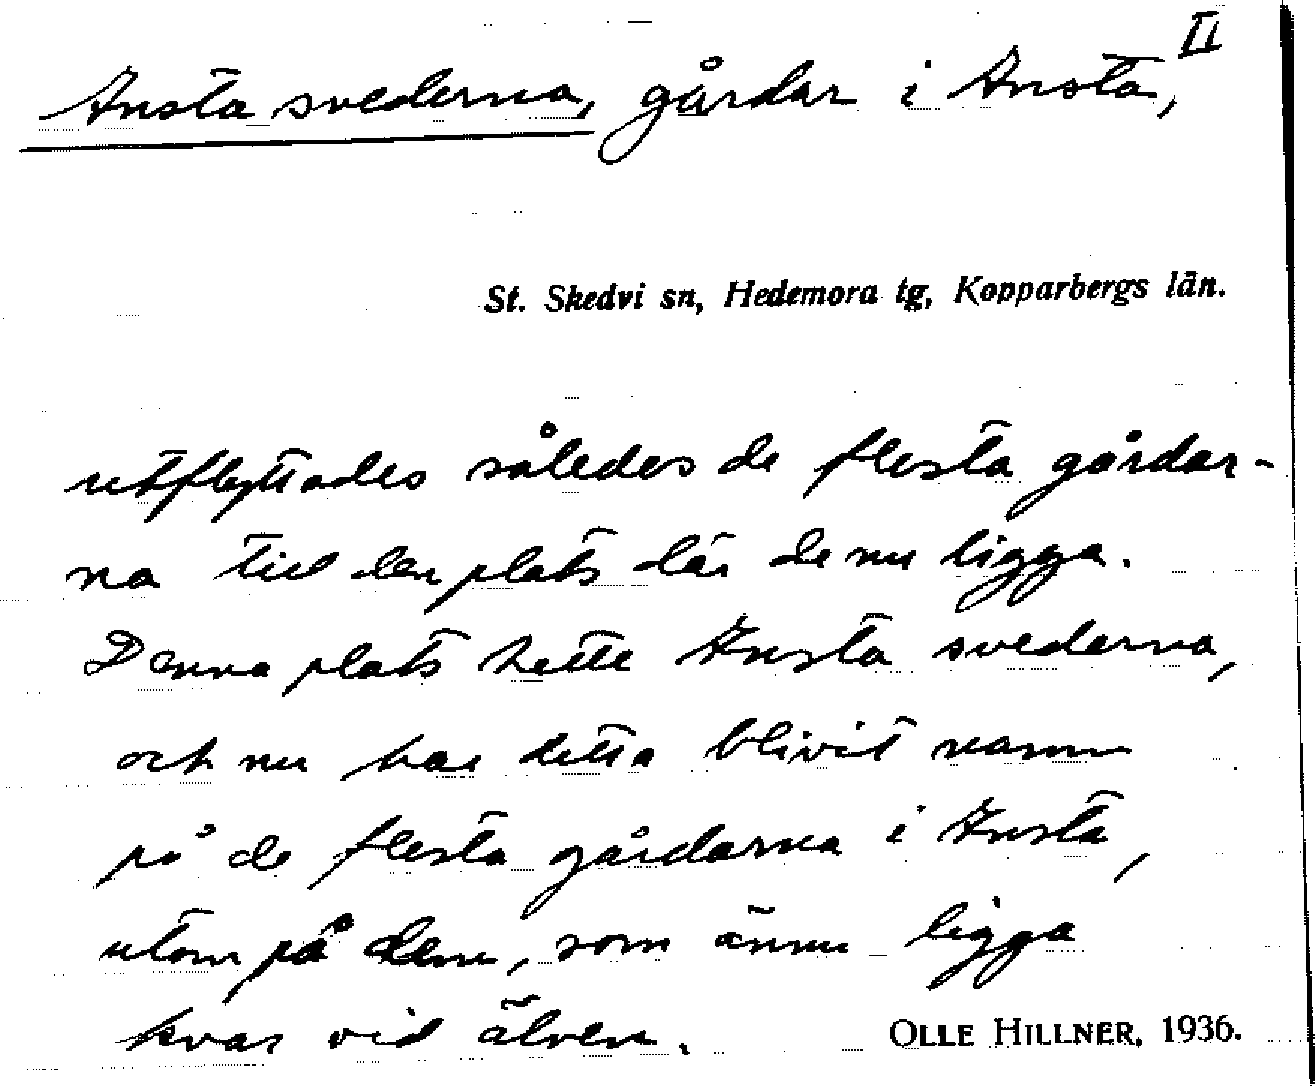 II
Ansta svederna, gårdar i Ansta,
St. Skedvi sn, Hedemora tg, Kopparbergs län.
utflyttades således de flesta gårdar-
na till den plats där de nu ligga.
Denna plats hette Ansta svederna,
och nu har detta blivit namn
på de flesta gårdarna i Ansta,
utom på dem, som ännu ligga
kvar vid älven.
OLLE HILLNER, 1936.